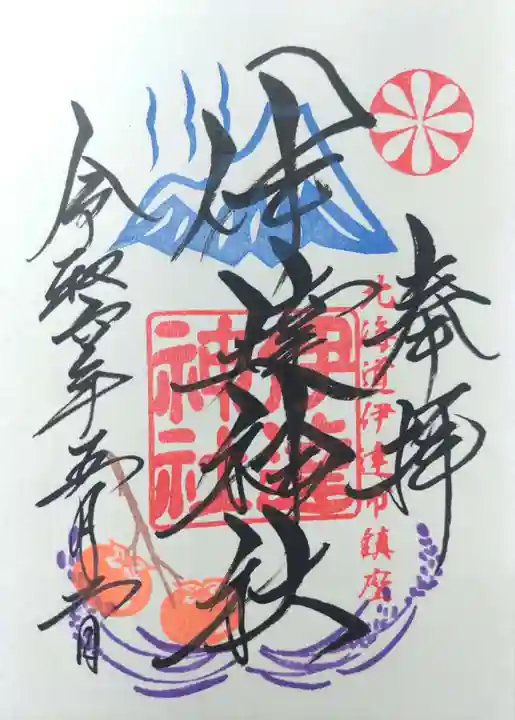 奉拝
北海道伊達市鎮座
伊達神社
伊達
神社
令和四年五月六日